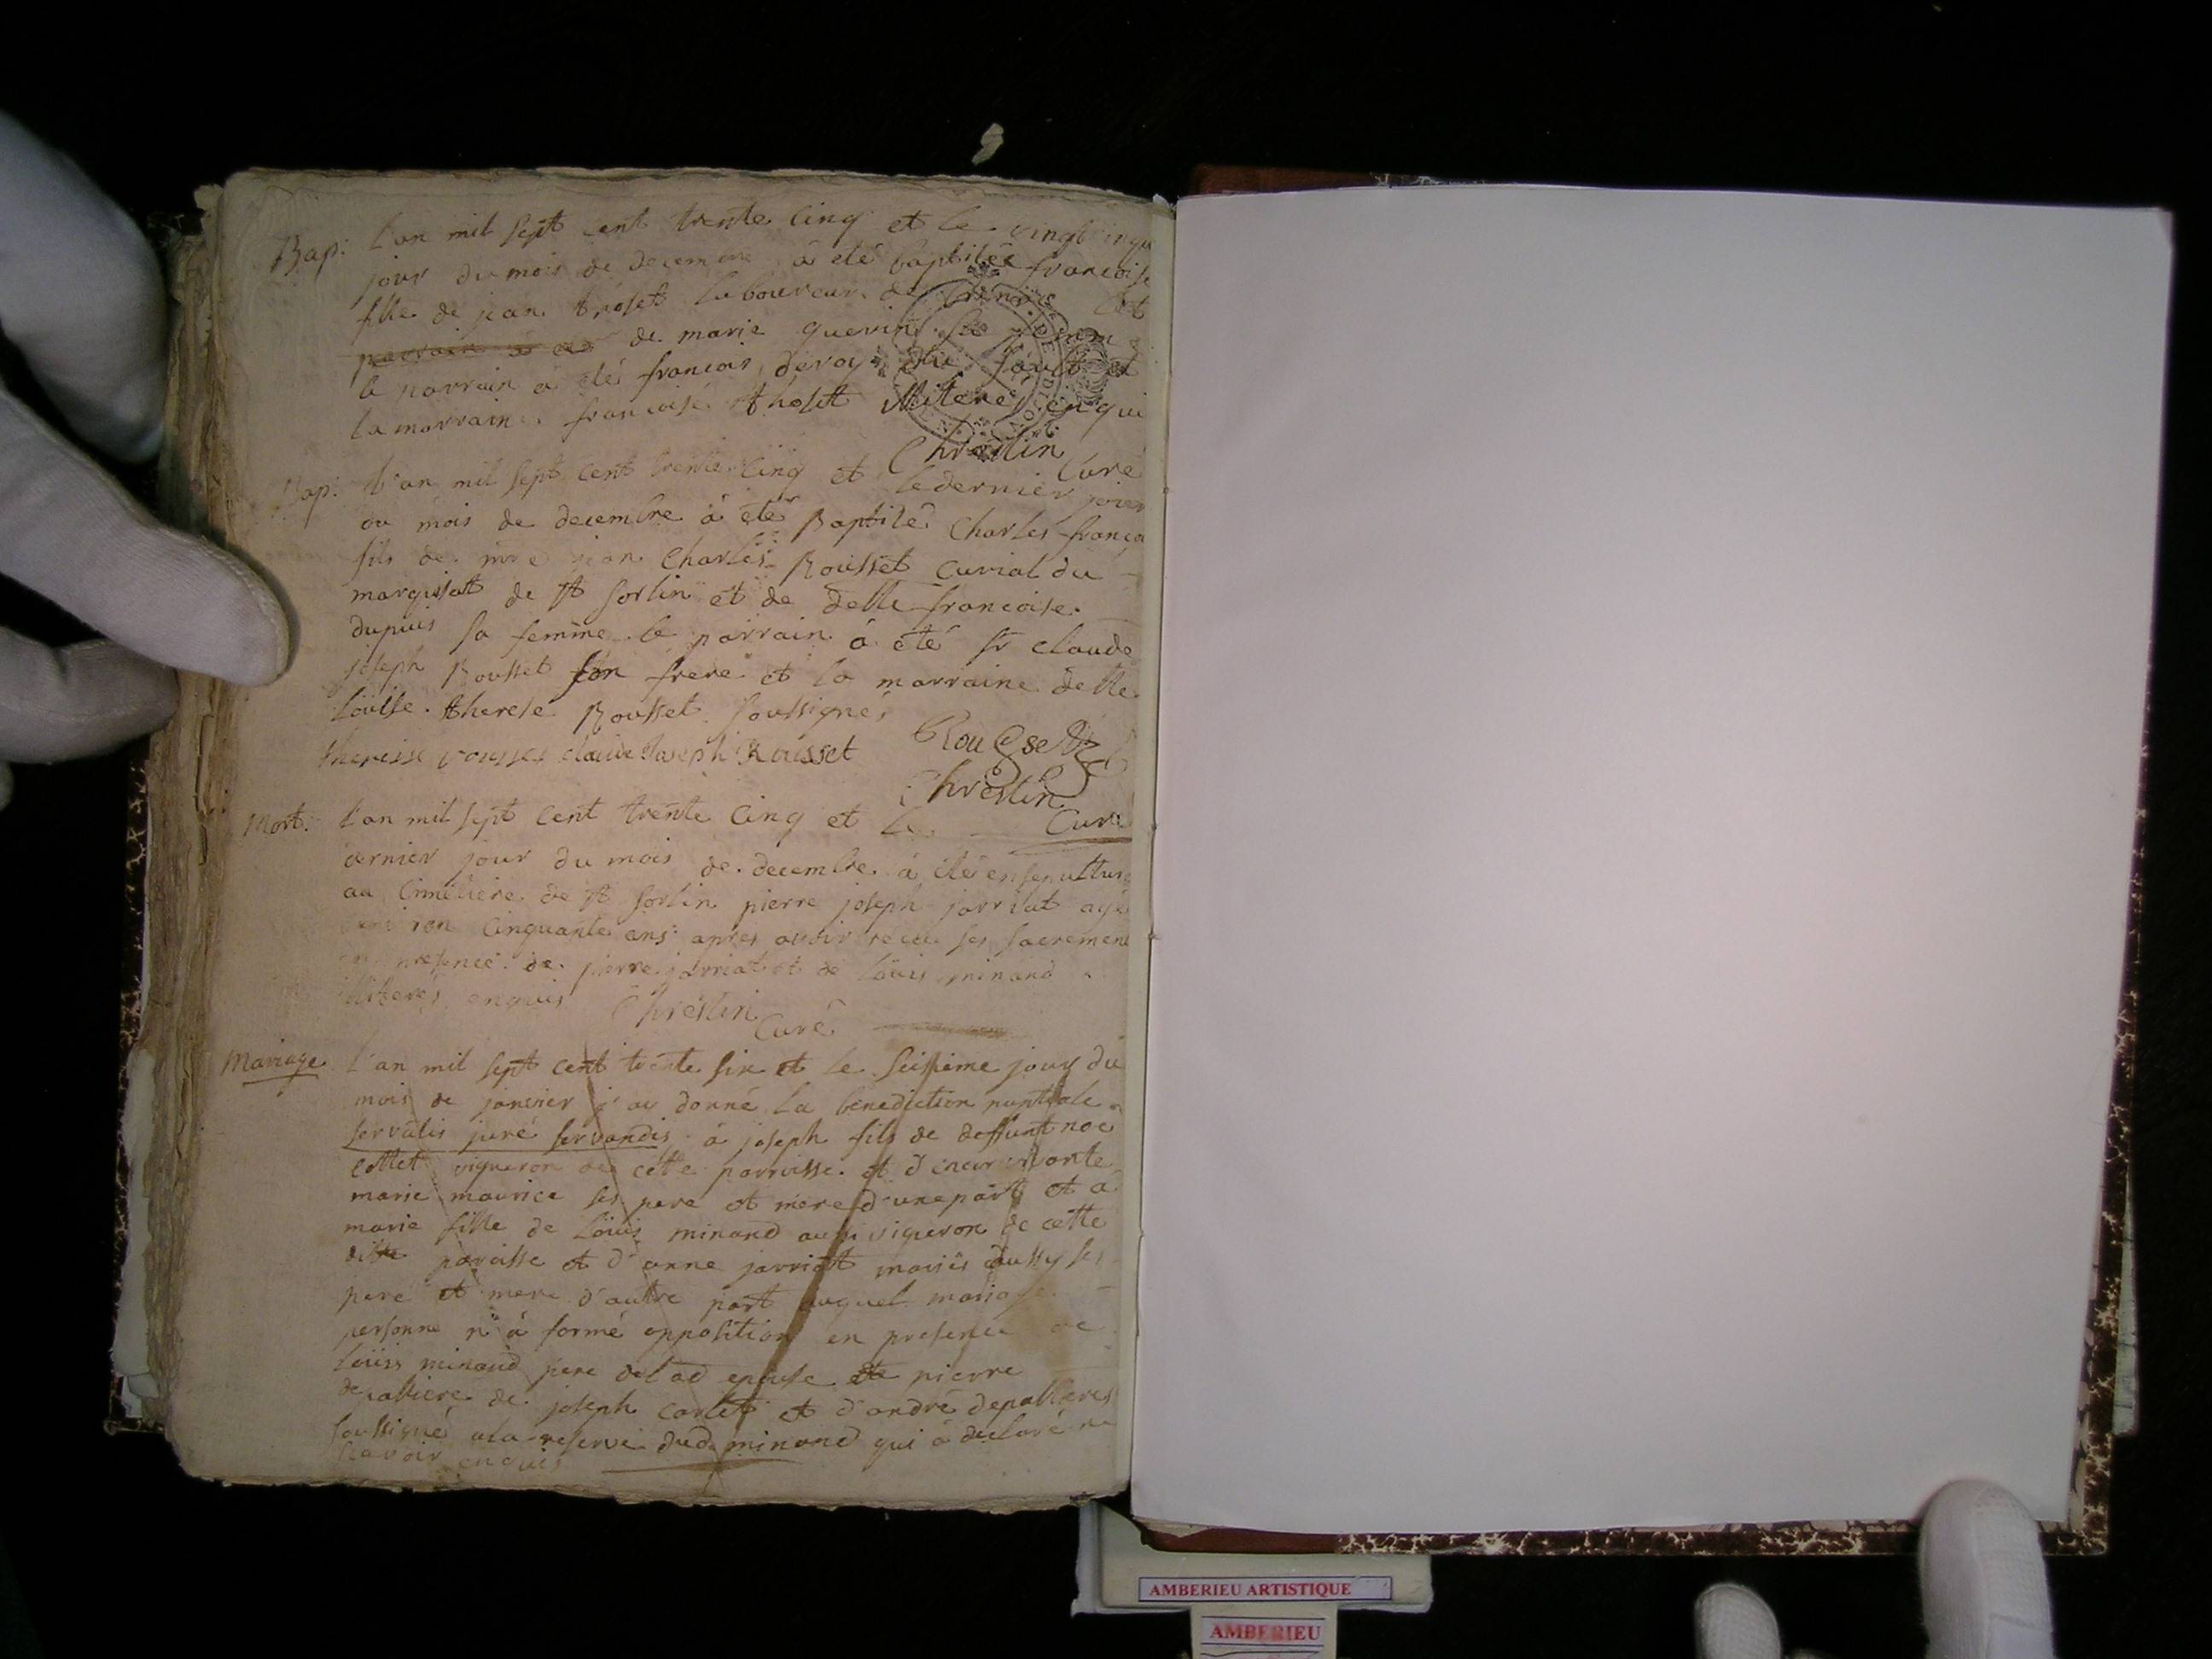 Bap: L'an mil sept cent trente cinq et le vingt
jour du mois de decembre à eté baptisée francoise
fille de jean thoset laboureur de et
de marie guerin sa femme
le parrain à eté francois deroy du sault et
la marraine francoise thoset illiteres enquis
Chrestin Curé
Bap: L'an mil sept cent trente cinq et le dernier jour
du mois de decembre à eté Baptisé Charles franco
fils de mre jean Charles Rousset curial du
marquisat de st sorlin et de delle francoise
dupuis sa femme le parrain à eté sr claude
joseph Rousset son frere et la marraine delle
Loüise therese Rousset soussignés
theresse rousset claude Joseph Rousset Rousset
Chrestin
Curé
Mort: L'an mil sept cent trente cinq et le
dernier jour du mois de decembre à eté ensepulturé
au Cimetiere de st sorlin pierre joseph jarriat agé
environ cinquante ans apres avoir recu ses sacremen
en presence de pierre jarriat et de Loüis minand
illiteres enquis Chrestin
Curé
Mariage L'an mil sept cent trente six et le seisieme jour du
mois de janvier j'ai donné la benediction nuptiale
servatis juré servandis à joseph fils de deffunt noe
cottet vigneron de cette parroisse et d'encor vivante
marie maurice ses pere et mere d'une part et à
marie fille de Loüis minand aussi vigneron de cette
ditte paroisse et d'anne jarriat mariés aussy ses
pere et mere d'autre part auquel mariage
personne n'à formé opposition en presence de
Loüis minand pere de lad epouse de pierre
depalliere de joseph carlet et d'andré depallieres
soussigné a la reserve dud minand qui à declaré ne
scavoir enquis
AMBERIEU ARTISTIQUE
AMBERIEU